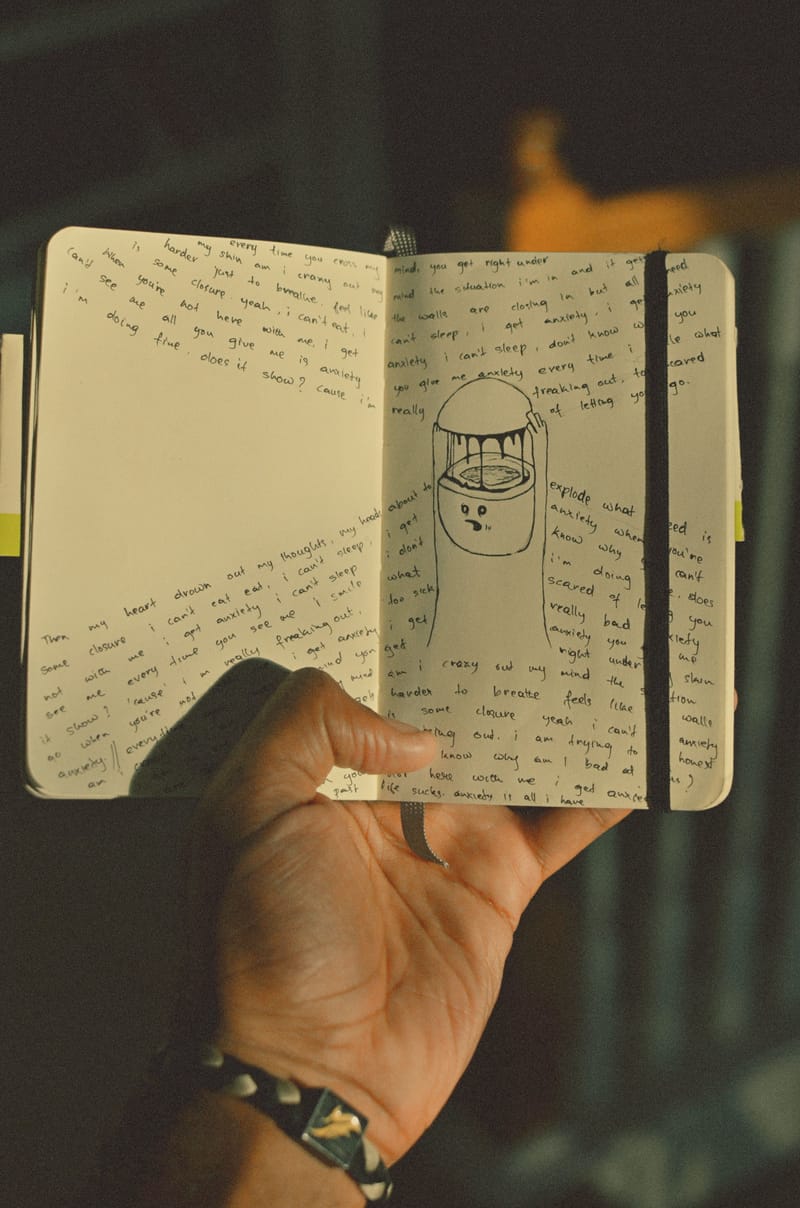 every time you cross my
is my skin am i crazy out my
harder just to breathe. feel like
some closure. yeah, i can't eat, i
can't when you're not here with me. i get
see me all you give me is anxiety
i'm doing fine. does it show? cause i'm
Then my heart drown out my thoughts, my heads
some closure i can't eat eat, i can't sleep,
not with me i get anxiety i can't sleep
see me every time you see me i smile
it show? 'cause i'm really freaking out,
go when you're not i get anxiety
anxiety. mind you
am i mind
past
mind, you get right under
mind the situation i'm in and it gets need
the walls are closing in but all anxiety
can't sleep, i get anxiety, i get you
anxiety i can't sleep, don't know what
you give me anxiety every time i scared
really freaking out, of letting go.
about to explode what need is
i get anxiety when you're
i don't know why can't
what i'm doing does
too sick scared of you
i get really bad anxiety
get anxiety you me
right under skin
am i crazy out my mind the
harder to breathe feels like walls
is some closure yeah i can't anxiety
out. i am trying to honest
know why am i bad at ?
here with me i get
life sucks. anxiety is all i have